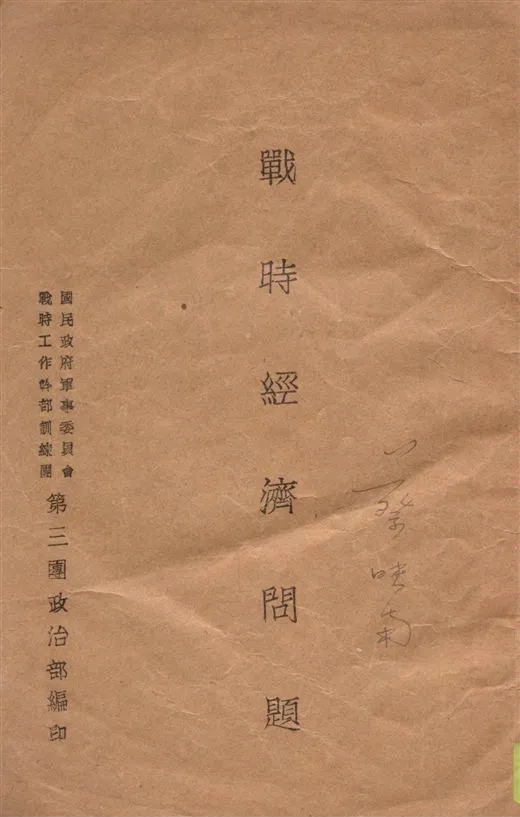 戰時經濟問題
國民政府軍事委員會
戰時工作幹部訓練團
第三團政治部編印